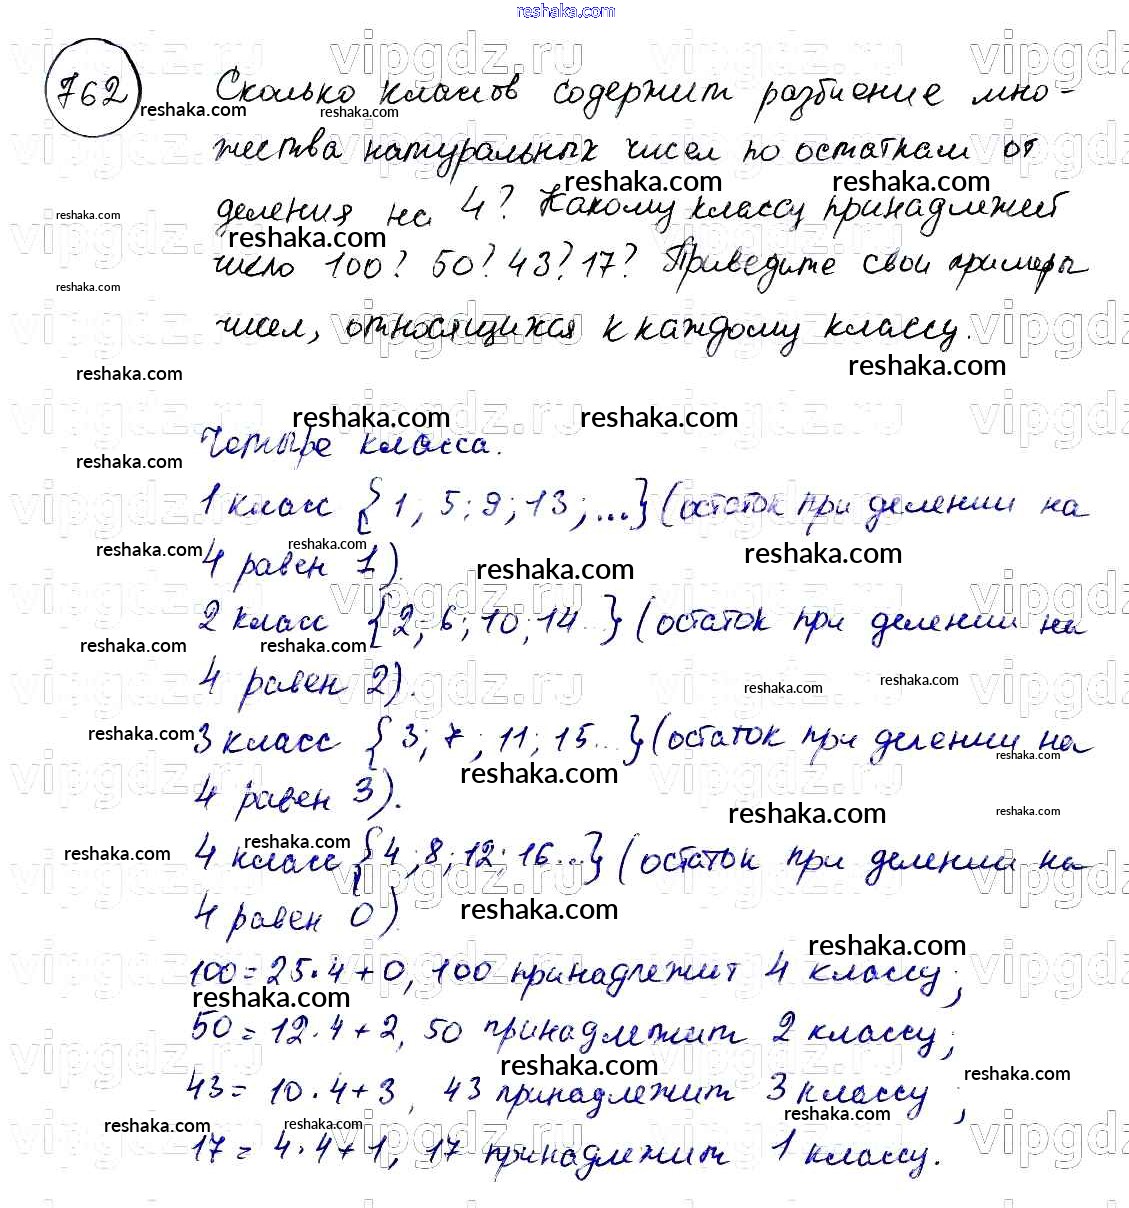 reshaka.com
762
Сколько классов содержит разбиение мно-
жества натуральных чисел по остаткам от
деления на 4? Какому классу принадлежит
число 100? 50? 43? 17? Приведите свои примеры
чисел, относящихся к каждому классу.
Четыре класса.
1 класс {1; 5; 9; 13; ...} (остаток при делении на
4 равен 1).
2 класс {2; 6; 10; 14...} (остаток при делении на
4 равен 2).
3 класс {3; 7; 11; 15...} (остаток при делении на
4 равен 3).
4 класс {4; 8; 12; 16...} (остаток при делении на
4 равен 0)
100 = 25·4+0, 100 принадлежит 4 классу;
50 = 12·4+2, 50 принадлежит 2 классу;
43 = 10·4+3, 43 принадлежит 3 классу;
17 = 4·4+1, 17 принадлежит 1 классу.